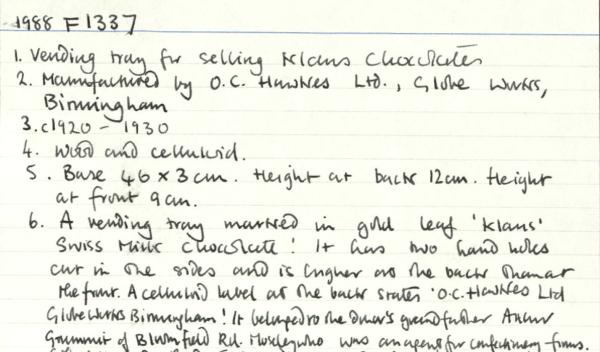 1988 F1337
1. Vending tray for selling Klaus Chocolates
2. Manufactured by O.C. Hawkes Ltd., Globe Works,
Birmingham
3. c1920 - 1930
4. Wood and celluloid.
5. Base 46 x 3 cm. Height at back 12cm. Height
at front 9 cm.
6. A vending tray marked in gold leaf 'Klaus'
Swiss Milk Chocolate! It has two hand holes
cut in the sides and is higher at the back than at
the front. A celluloid label at the back states 'O.C. Hawkes Ltd
Globe Works Birmingham! It belonged to the donor's grandfather Arthur
of Bloomfield Rd. Moseley who was an agent for confectionery firms.